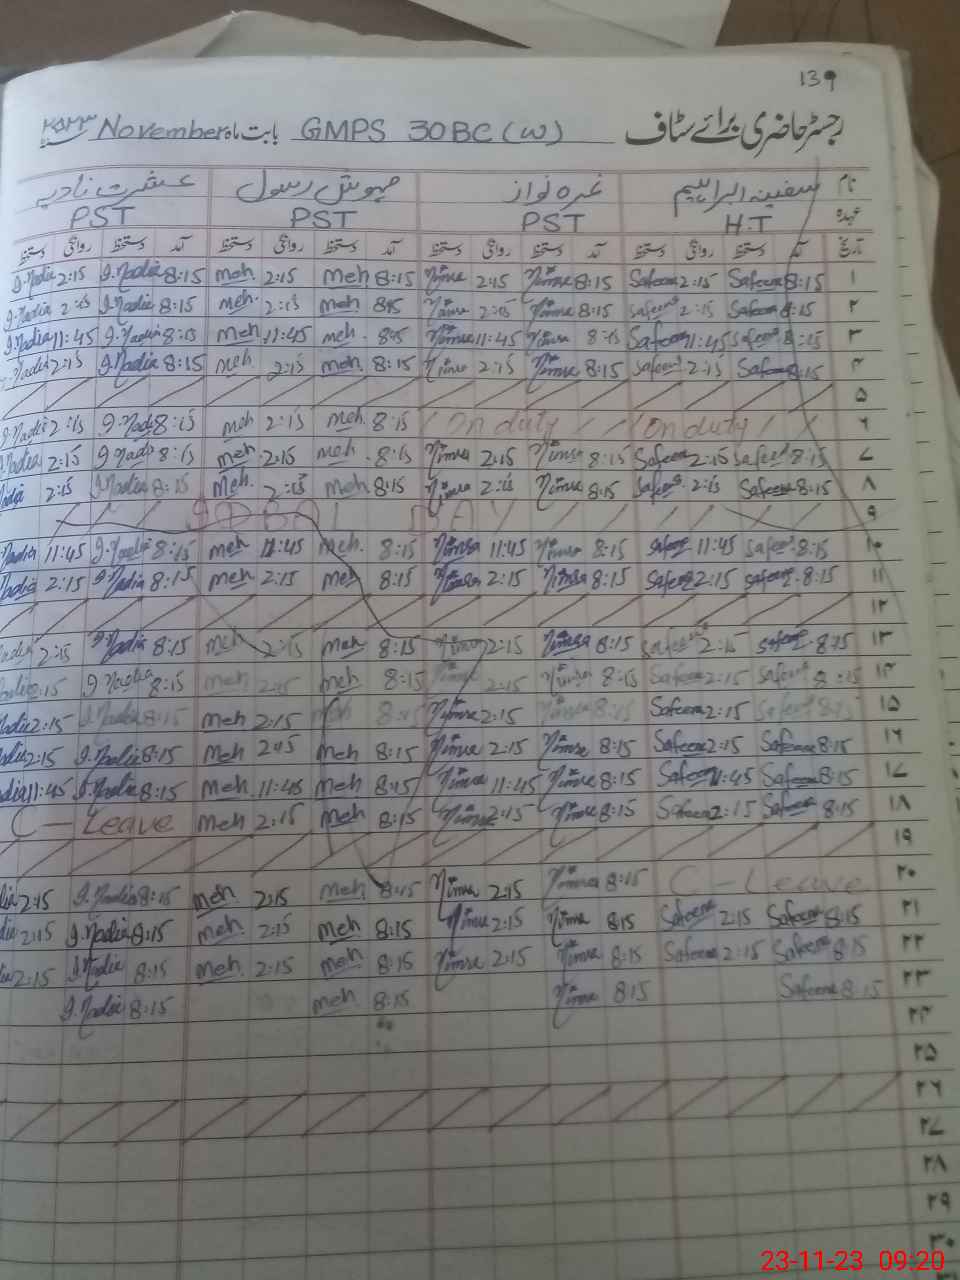 139
رجسٹر حاضری برائے سٹاف GMPS 30BC (W) بابت ماہ November ۲۰۲۳
نام سفینہ ابراہیم نمرہ نواز مہوش رسول عشرت نادیہ
عہدہ H.T PST PST PST
تاریخ آمد دستخط روانگی دستخط آمد دستخط روانگی دستخط آمد دستخط روانگی دستخط آمد دستخط روانگی دستخط
۱ 8:15 Safeena 2:15 Safeena 8:15 Nimra 2:15 Nimra 8:15 meh 2:15 meh. 8:15 I.Nadia 2:15 I.Nadia
۲ 8:15 Safeena 2:15 Safeena 8:15 Nimra 2:15 Nimra 8:15 meh 2:15 meh. 8:15 I.Nadia 2:15 I.Nadia
۳ 8:15 Safeena 11:45 Safeena 8:15 Nimra 11:45 Nimra 8:15 meh. 11:45 meh 8:15 I.Nadia 11:45 I.Nadia
۴ 8:15 Safeena 2:15 Safeena 8:15 Nimra 2:15 Nimra 8:15 meh 2:15 meh. 8:15 I.Nadia 2:15 I.Nadia
۵
۶ On duty On duty 8:15 meh. 2:15 meh 8:15 I.Nadia 2:15 I.Nadia
۷ 8:15 Safeena 2:15 Safeena 8:15 Nimra 2:15 Nimra 8:15 meh. 2:15 meh. 8:15 I.Nadia 2:15 Nadia
۸ 8:15 Safeena 2:15 Safeena 8:15 Nimra 2:15 Nimra 8:15 meh 2:15 meh. 8:15 I.Nadia 2:15 Nadia
۹ IQBAL DAY
۱۰ 8:15 Safeena 11:45 Safeena 8:15 Nimra 11:45 Nimra 8:15 meh. 11:45 meh 8:15 I.Nadia 11:45 Nadia
۱۱ 8:15 Safeena 2:15 Safeena 8:15 Nimra 2:15 Nimra 8:15 meh 2:15 meh 8:15 I.Nadia 2:15 Nadia
۱۲
۱۳ 8:15 Safeena 2:15 Safeena 8:15 Nimra 2:15 Nimra 8:15 meh 2:15 meh 8:15 I.Nadia 2:15 Nadia
۱۴ 8:15 Safeena 2:15 Safeena 8:15 Nimra 2:15 Nimra 8:15 meh 2:15 meh 8:15 I.Nadia 2:15
۱۵ 8:15 Safeena 2:15 Safeena 8:15 Nimra 2:15 Nimra 8:15 meh 2:15 meh 8:15 I.Nadia 2:15
۱۶ 8:15 Safeena 2:15 Safeena 8:15 Nimra 2:15 Nimra 8:15 meh 2:15 meh 8:15 I.Nadia 2:15
۱۷ 8:15 Safeena 11:45 Safeena 8:15 Nimra 11:45 Nimra 8:15 meh 11:45 meh 8:15 I.Nadia 11:45
۱۸ 8:15 Safeena 2:15 Safeena 8:15 Nimra 2:15 Nimra 8:15 meh 2:15 meh C-Leave
۱۹
۲۰ C-Leave 8:15 Nimra 2:15 Nimra 8:15 meh. 2:15 meh. 8:15 I.Nadia 2:15
۲۱ 8:15 Safeena 2:15 Safeena 8:15 Nimra 2:15 Nimra 8:15 meh 2:15 meh. 8:15 I.Nadia 2:15
۲۲ 8:15 Safeena 2:15 Safeena 8:15 Nimra 2:15 Nimra 8:15 meh 2:15 meh. 8:15 I.Nadia 2:15
۲۳ 8:15 Safeena 8:15 Nimra 8:15 meh. 8:15 I.Nadia
۲۴
۲۵
۲۶
۲۷
۲۸
۲۹
۳۰
23-11-23 09:20